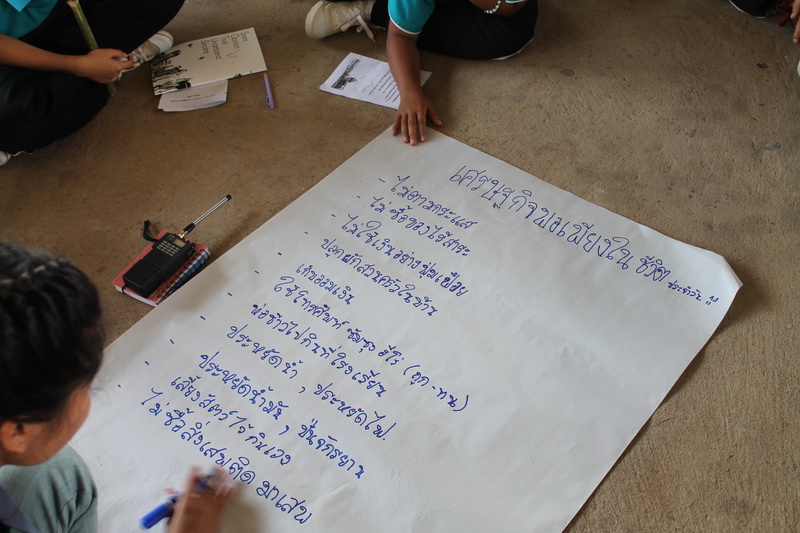 เศรษฐกิจพอเพียงใน ชีวิต ประจำวัน
- ไม่ตามกระแส
- ไม่ ซื้อของไร้สาระ
- ไม่ใช้เงินอย่างฟุ่มเฟือย
- ปลูกผักสวนครัวในบ้าน
- เก็บออมเงิน
- ใช้โทรศัพท์ ซัมซุง ฮีโร่ (ถูก - ทน)
- ห่อข้าวไปกินที่โรงเรียน
- ประหยัดน้ำ , ประหยัดไฟ.
- ประหยัดน้ำมัน , ปั่นจักรยาน
- เลี้ยงสัตว์ ไว้กินเอง
- ไม่ ซื้อสิ่งเสพติด มาเสพ